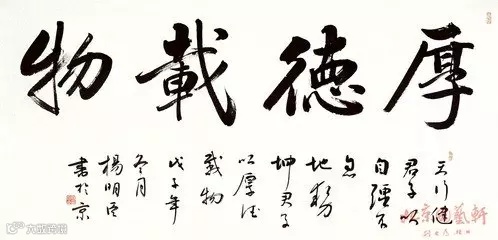 厚德載物
天行健
君子以
自強不
息
地勢
坤君子
以厚德
載物
戊子年
冬月
楊明臣
書於京
北京藝軒